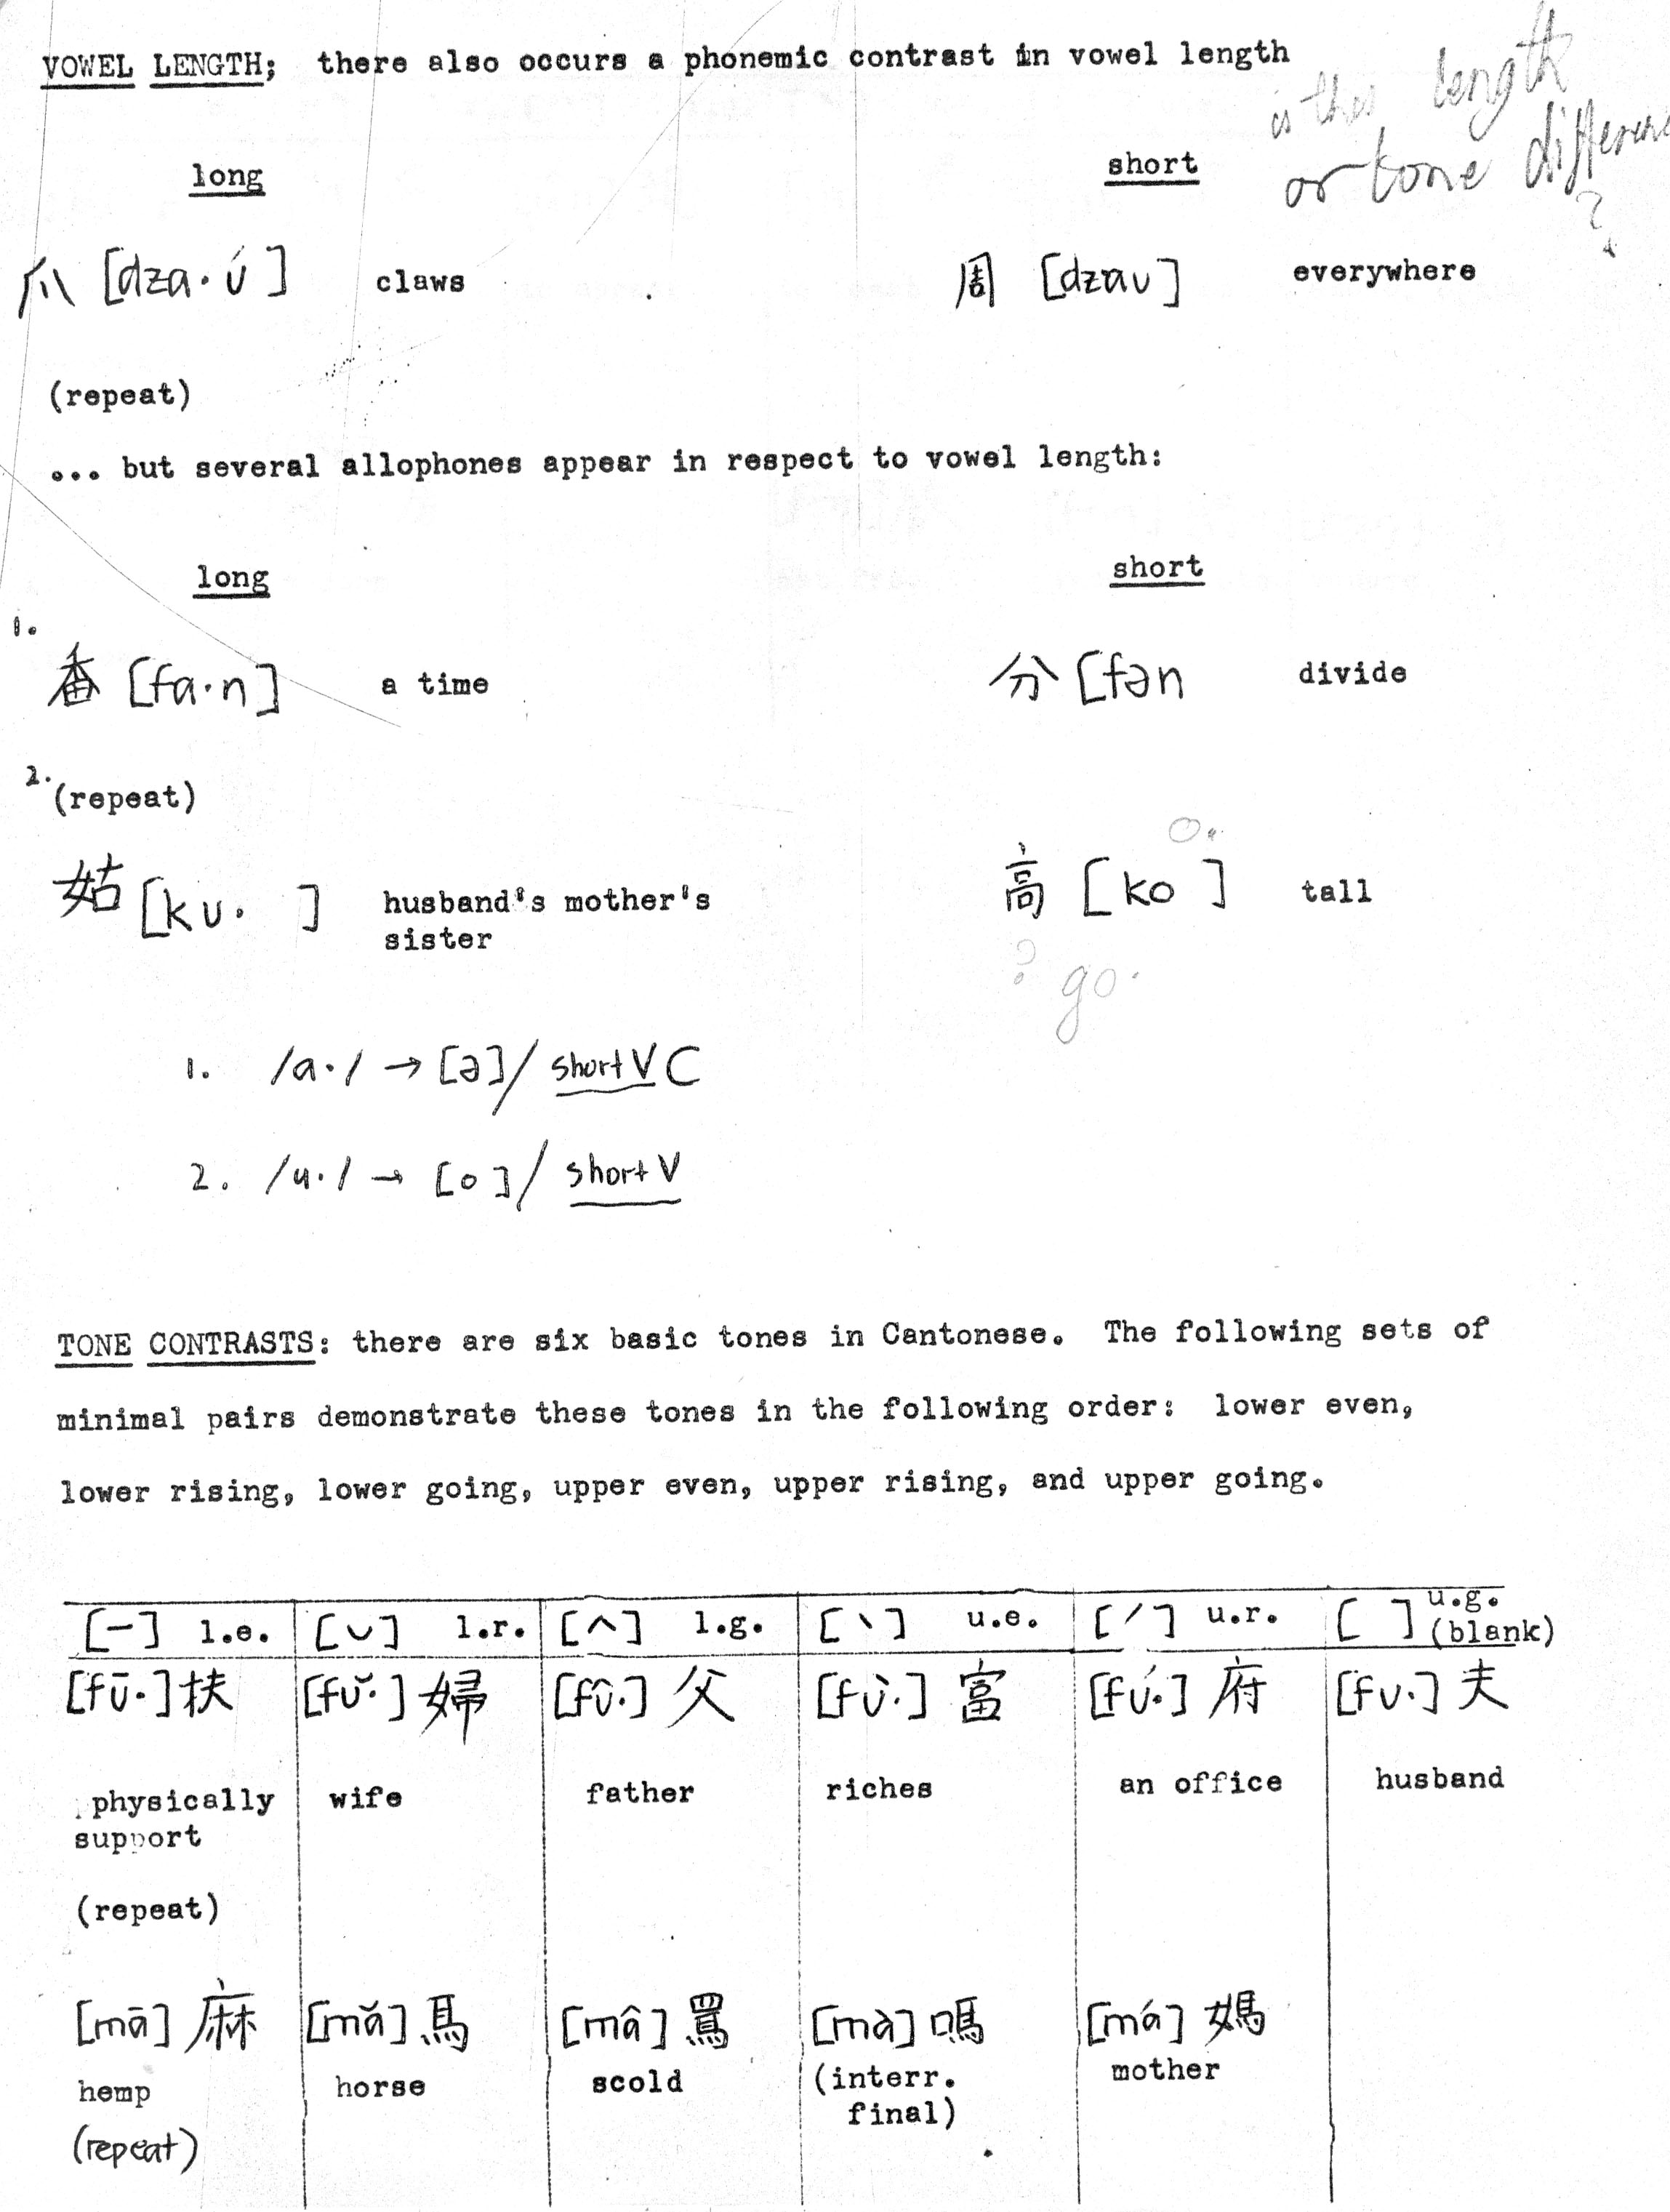 VOWEL LENGTH; there also occurs a phonemic contrast in vowel length
is this length
or tone difference
?
long short
爪 [dza·ú] claws 周 [dzaυ] everywhere
(repeat)
... but several allophones appear in respect to vowel length:
long short
1.
番 [fa·n] a time 分 [fən divide
2.
(repeat)
o·
姑 [kυ· ] husband's mother's 高 [ko ] tall
sister
? go·
1. /a·/ → [ə]/ short V C
2. /u·/ → [o]/ short V
TONE CONTRASTS: there are six basic tones in Cantonese. The following sets of
minimal pairs demonstrate these tones in the following order: lower even,
lower rising, lower going, upper even, upper rising, and upper going.
[–] l.e. [˘] l.r. [^] l.g. [ˋ] u.e. [ˊ] u.r. [ ] u.g.
(blank)
[fῡ·] 扶 [fῠ·] 婦 [fυ̂·] 父 [fὺ·] 富 [fύ·] 府 [fυ·] 夫
physically wife father riches an office husband
support
(repeat)
[mā] 麻 [mă] 馬 [mâ] 罵 [mà] 嗎 [má] 媽
hemp horse scold (interr. mother
final)
(repeat)